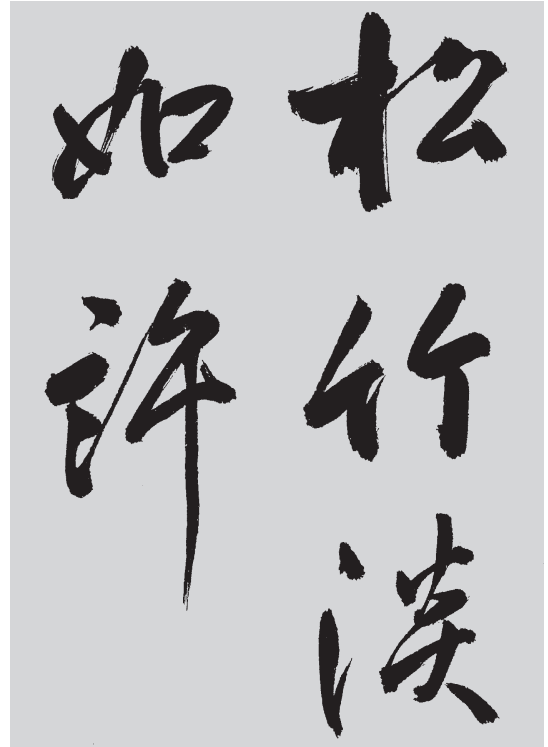 松竹淡
如許